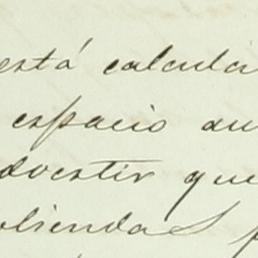 está calcula
espacio au
advertir que
moliendas p